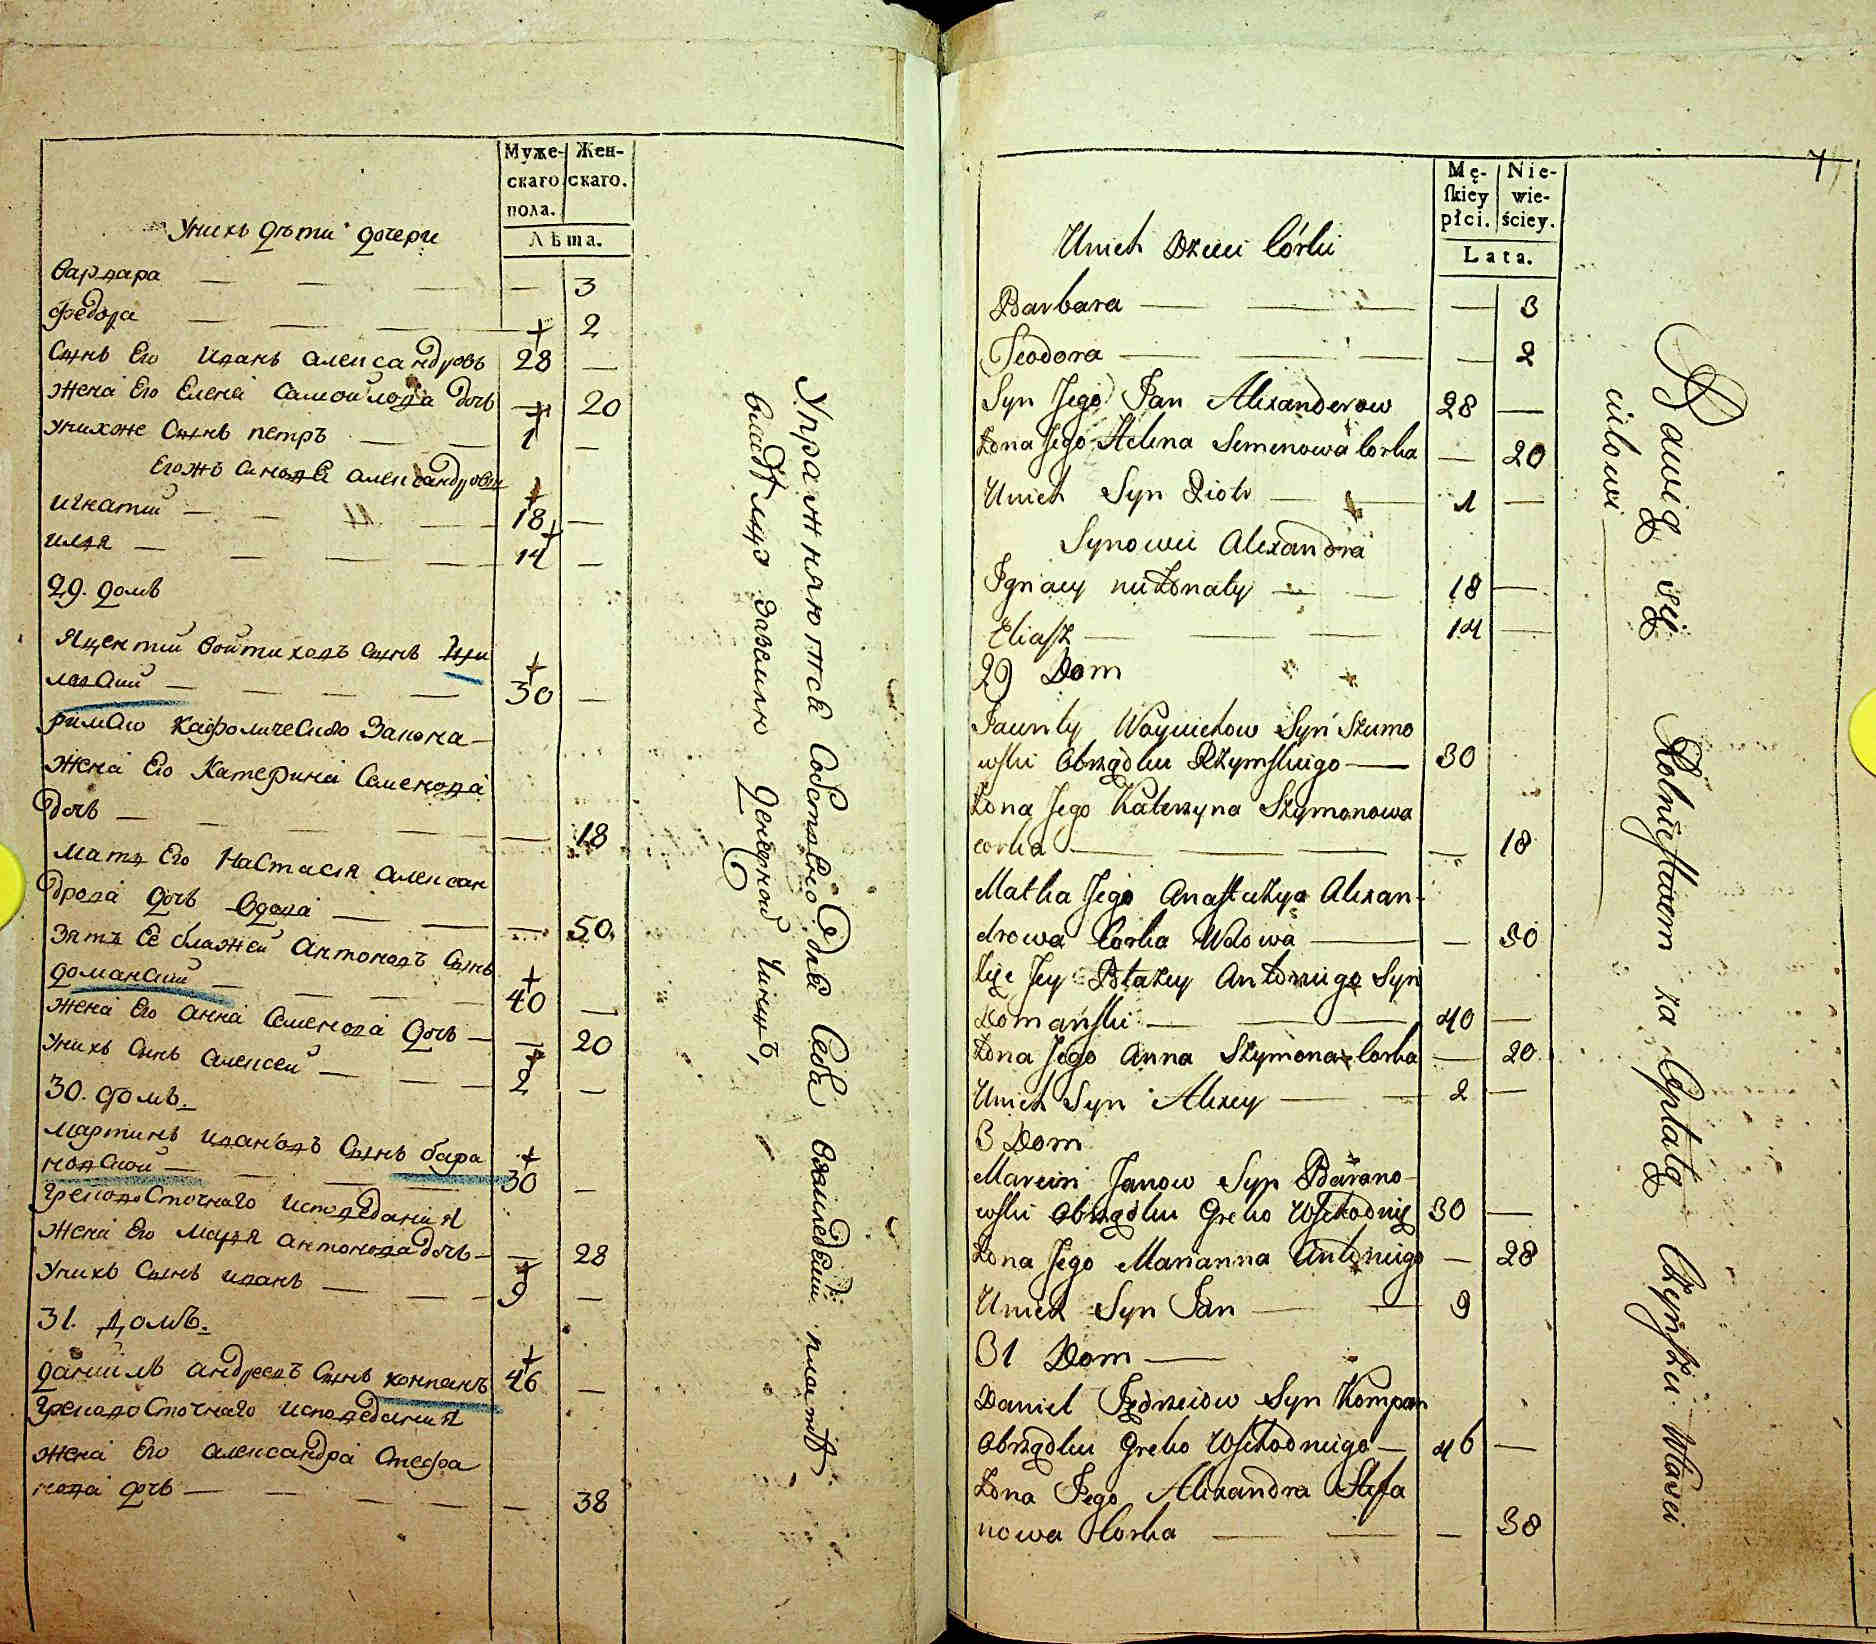 Муже-
скаго
пола.
Жен-
скаго.
Лѣта.
Унихъ дѣти дочери
Варвара — — — — 3
Федора — — — 2
Сынъ Его Иванъ Александровъ 28 —
жена Его Елена Самойлова дочь — 20
унихже Сынъ петръ — — 1 —
Егожъ Александров
игнатий — — — 18 —
илья — — — — 14 —
29. домъ
Яцентий войтиховъ Сынъ Шу
мовский — — — — 30 —
римско кафолическаго Закона —
жена Его Катерина Семенова
дочь — — — — — 18
мать Его Настасія Алексан
дрова дочь вдова — — — 50
зять Ее блажей Антоновъ Сынъ
доманский — — — — 40 —
жена Его анна Семенова дочь — — 20
унихъ Сынъ Алексей — — — 2 —
30. домъ.
мартинъ ивановъ Сынъ бара
новский — — — — 30 —
грековосточнаго исповедания
жена Его марья антонова дочь — — 28
унихъ Сынъ иванъ — — — 9 —
31. домъ.
данийлъ андреевъ Сынъ компанъ 46 —
грековосточнаго исповедания
жена Его александра Стефа
нова дочь — — — — — 38
Упражняются
владѣльцу заземлю денежной чиншъ,
7
Mę-
ſkiey
płci.
Nie-
wie-
ściey.
Lata.
Unich Dzieci Córki
Barbara — — — — 3
Teodora — — — — 2
Syn Jego Jan Alexanderow 28 —
Żona Jego Helena Semenowa Corka — 20
Unich Syn Piotr — — 1 —
Synowie Alexandra
Ignacy nieżonaty — — 18 —
Eliaſz — — — 14 —
29 Dom
Jacenty Woyciechow Syn Szumo
wſki Obrządku Rzymſkiego — 30
Żona Jego Katerzyna Szymonowa
corka — — — — 18
Matka Jego Anaſtazya Alexan-
drowa Corka Wdowa — — 50
Zięć Jey Błazey Antoniego Syn
Domańſki — — — 40 —
Żona Jego Anna Szymona Corka — 20
Unich Syn Alexey — — 2 —
3 Dom
Marcin Janow Syn Barano-
wſki Obrządku Greko Wſchodnie 30 —
Żona Jego Marianna Antoniego — 28
Unich Syn Jan — — 9
31 Dom —
Daniel Jędrzeiow Syn Kompan
Obrządku Greko Wſchodniego — 46 —
Żona Jego Alexandra Stefa
nowa Corka — — — 38
Bawią się Rolnictwem za Opłatą Czynſzu Właści
cielowi